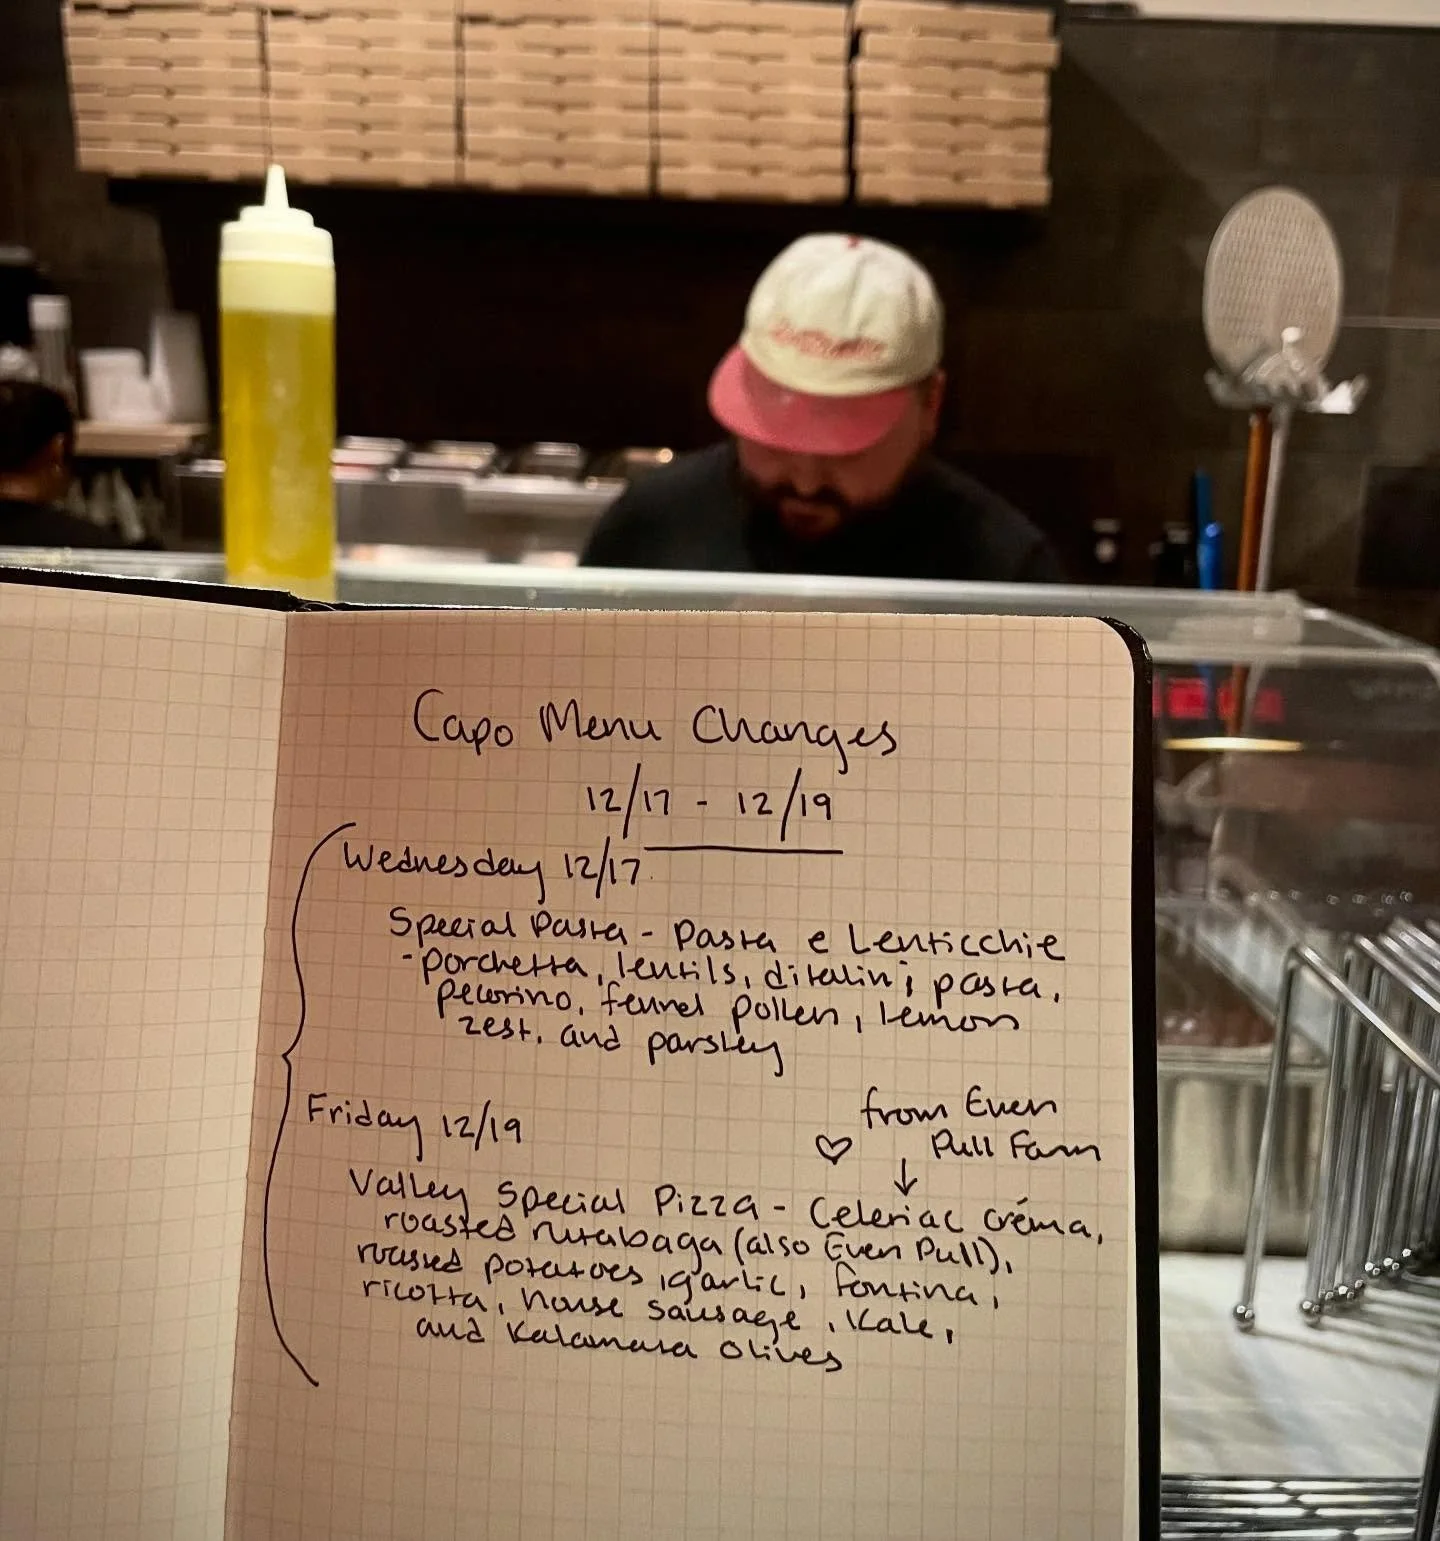 Capo Menu Changes
12/17 - 12/19
Wednesday 12/17
Special Pasta - Pasta e Lenticchie
- porchetta, lentils, ditalini pasta,
pecorino, fennel pollen, lemon
zest, and parsley
Friday 12/19
from Even
♡ Pull Farm
↓
Valley Special Pizza - Celeriac créma,
roasted rutabaga (also Even Pull),
roasted potatoes, garlic, fontina,
ricotta, house sausage, kale,
and Kalamata olives